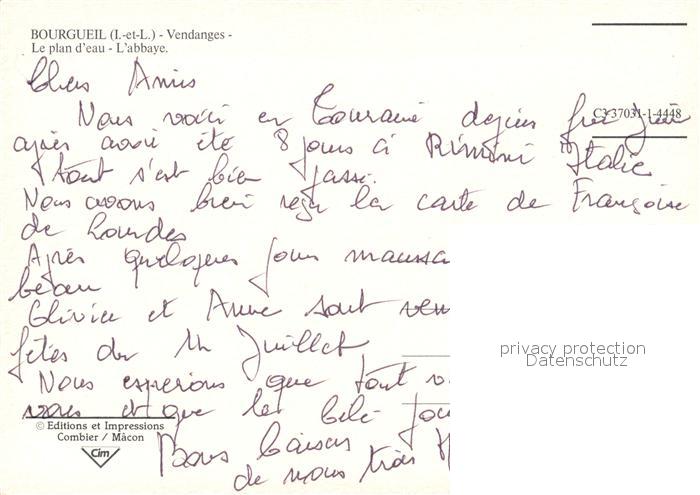 BOURGUEIL (I.-et-L.) - Vendanges -
Le plan d'eau - L'abbaye.
C3 37031-1-4448
Chers Amis
Nous voici en Touraine depuis fin Juin
après avoir été 8 jours à Rimini Italie
tout s'est bien passé.
Nous avons bien reçu la carte de Françoise
de Lourdes
Après quelques jours
beau
Olivier et Anne sont
fêtes du 14 Juillet
privacy protection
Datenschutz
Nous espérons que tout
vous et que le bébé
© Editions et Impressions
Combier / Mâcon
Cim
Bons baisers
de nous trois